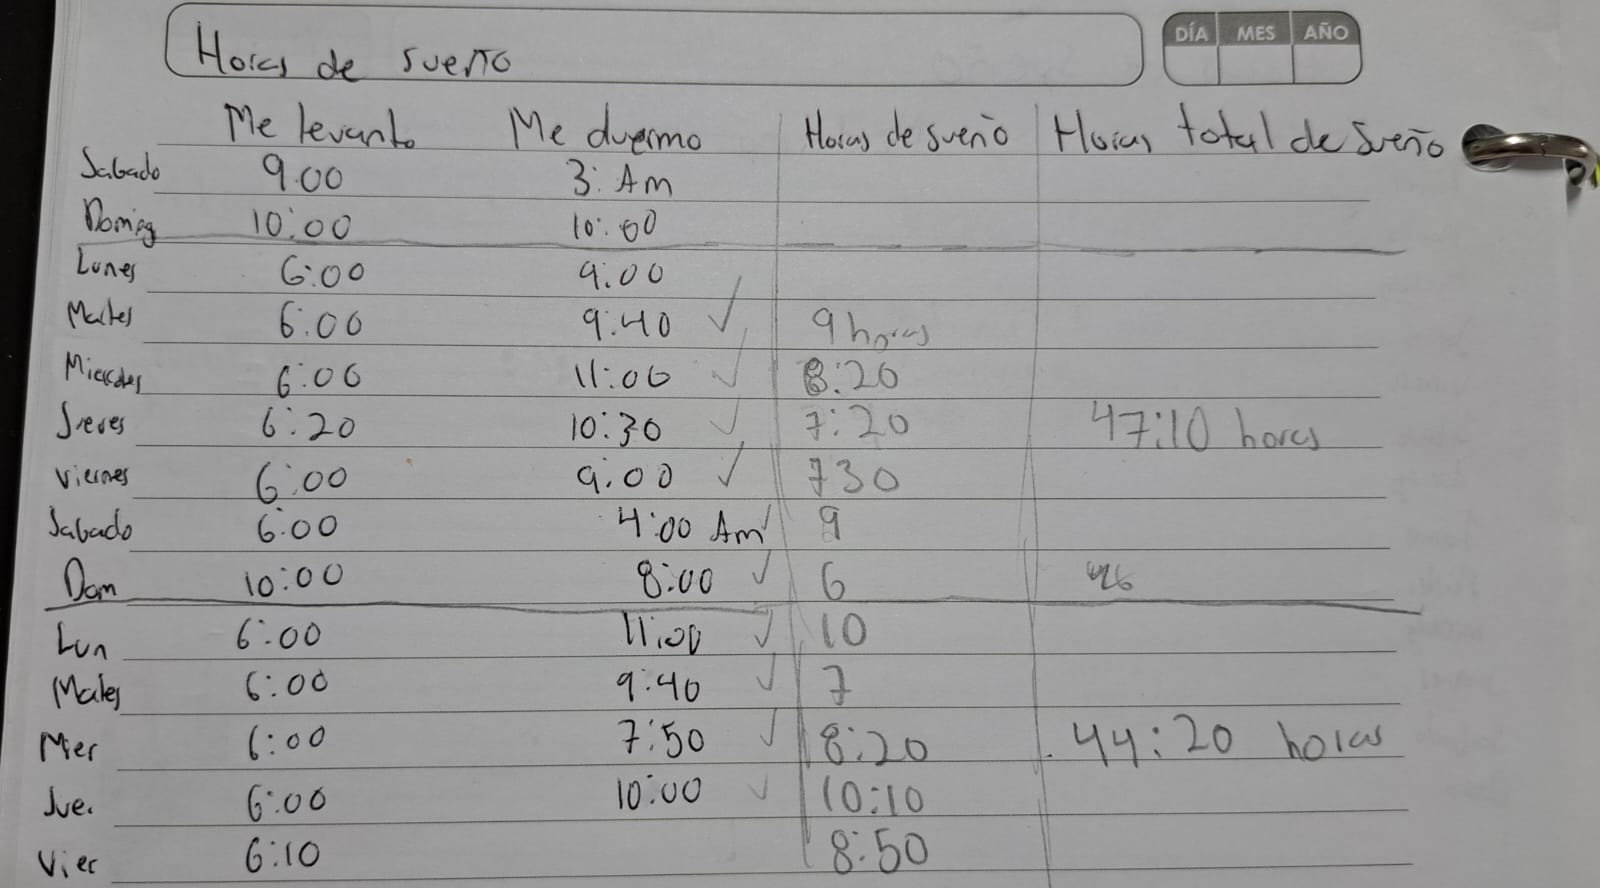 Horas de sueño
DÍA MES AÑO
Me levanto Me duermo Horas de sueño Horas total de Sueño
Sabado 9:00 3: Am
Doming 10:00 10:00
Lunes 6:00 9:00
Martes 6:00 9:40 ✓ 9 horas
Miercoles 6:00 11:00 ✓ 8:20
Jueves 6:20 10:30 ✓ 7:20 47:10 horas
Viernes 6:00 9:00 ✓ 730
Sabado 6:00 4:00 Am ✓ 9
Dom 10:00 8:00 ✓ 6
Lun 6:00 11:00 ✓ 10
Mates 6:00 9:40 ✓ 7
Mier 6:00 7:50 ✓ 8:20 44:20 horas
Jue. 6:00 10:00 ✓ 10:10
Vier 6:10 8:50